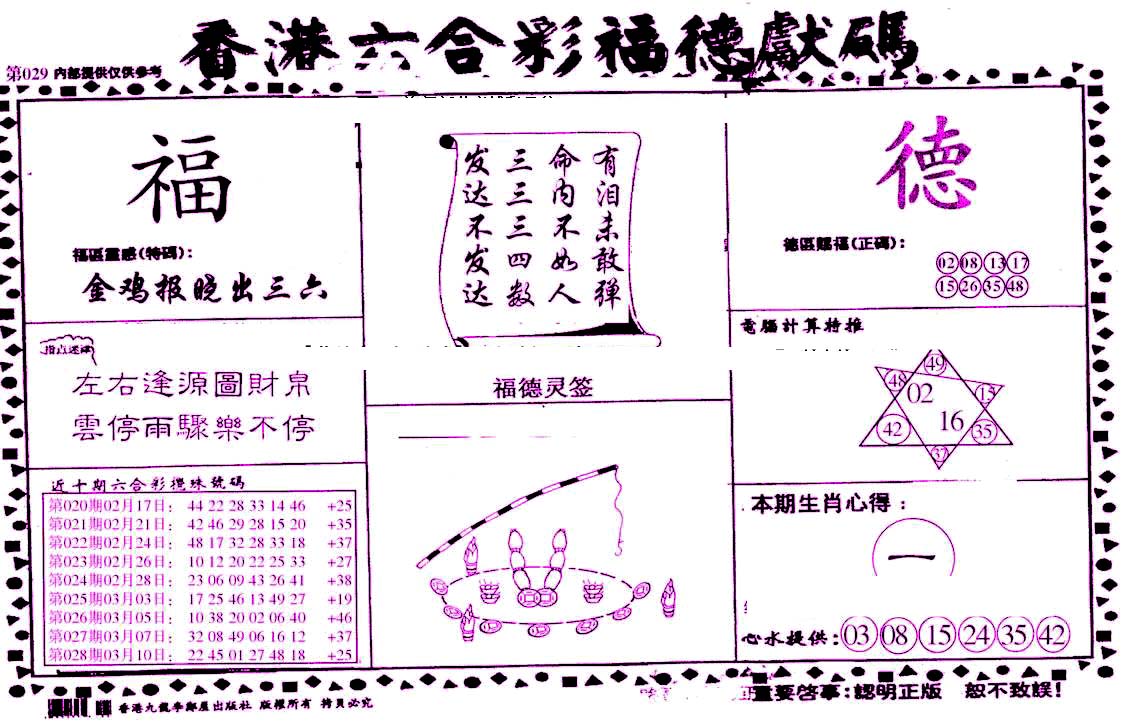 香港六合彩福德獻碼
第029 内部提供仅供参考
福
福區靈感(特碼):
金鸡报晓出三六
指点迷津
左右逢源圖財帛
雲停雨驟樂不停
近十期六合彩攪珠號碼
第020期02月17日: 44 22 28 33 14 46 +25
第021期02月21日: 42 46 29 28 15 20 +35
第022期02月24日: 48 17 32 28 33 18 +37
第023期02月26日: 10 12 20 22 25 33 +27
第024期02月28日: 23 06 09 43 26 41 +38
第025期03月03日: 17 25 46 13 49 27 +19
第026期03月05日: 10 38 20 02 06 40 +46
第027期03月07日: 32 08 49 06 16 12 +37
第028期03月10日: 22 45 01 27 48 18 +25
有泪未敢弹
命内不如人
三三三四数
发达不发达
福德灵签
德
德區賜福(正碼):
02 08 13 17
15 26 35 48
電腦計算特推
49
48 02 15
42 16 35
37
本期生肖心得:
一
心水提供: 03 08 15 24 35 42
重要啓事:認明正版 恕不致誤!
香港九龍李鄭屋出版社 版權所有 拷貝必究